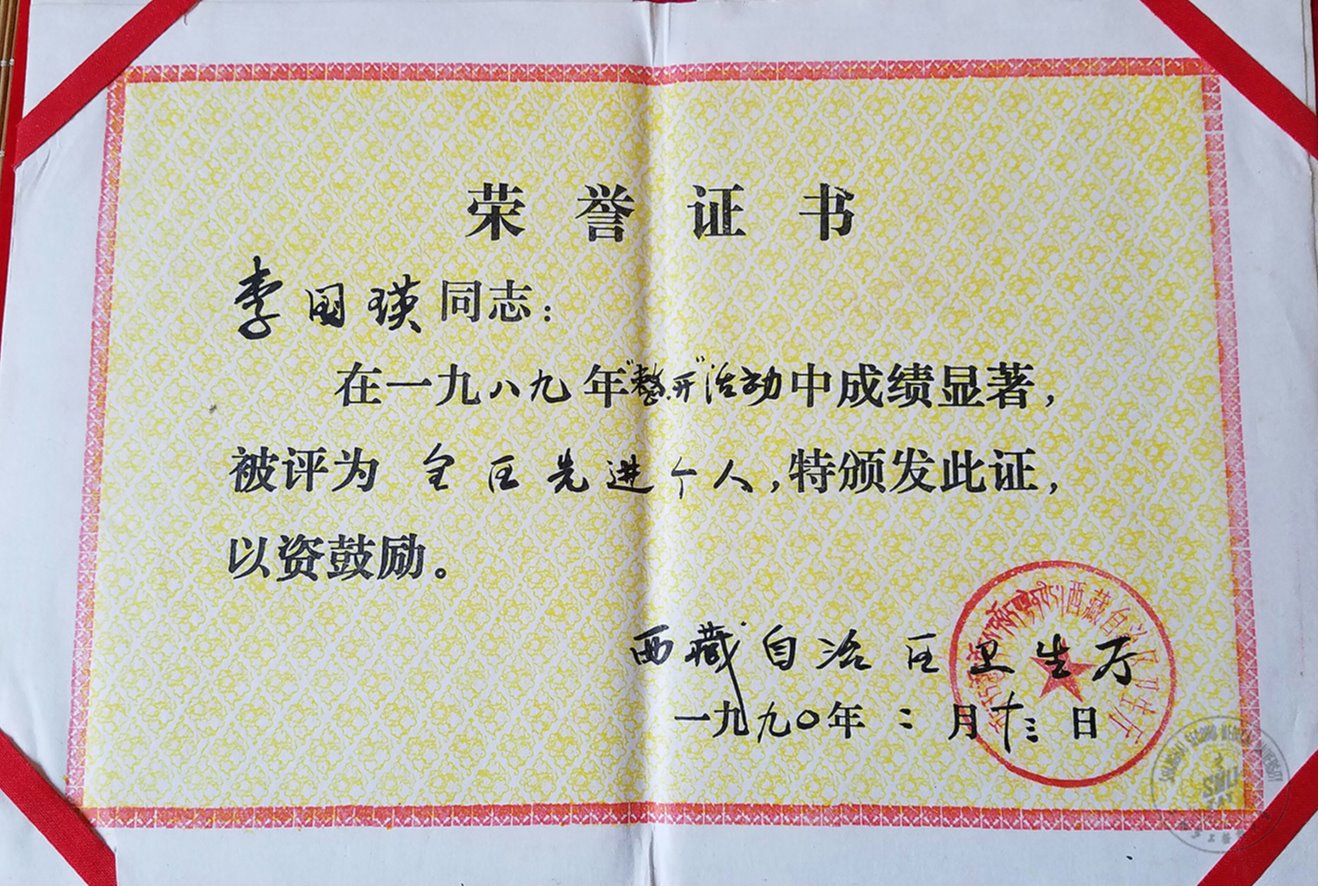 荣誉证书
李国瑛同志：
在一九八九年"整开"活动中成绩显著，
被评为 全区先进个人，特颁发此证，
以资鼓励。
西藏自治区卫生厅
一九九〇年二月十三日
西藏自治区卫生厅